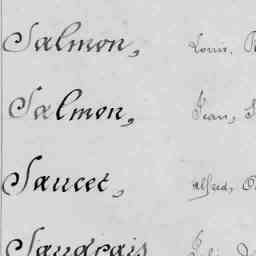 Salmon, Louis,
Salmon, Jean,
Saucet, Alfred,
Saudrais